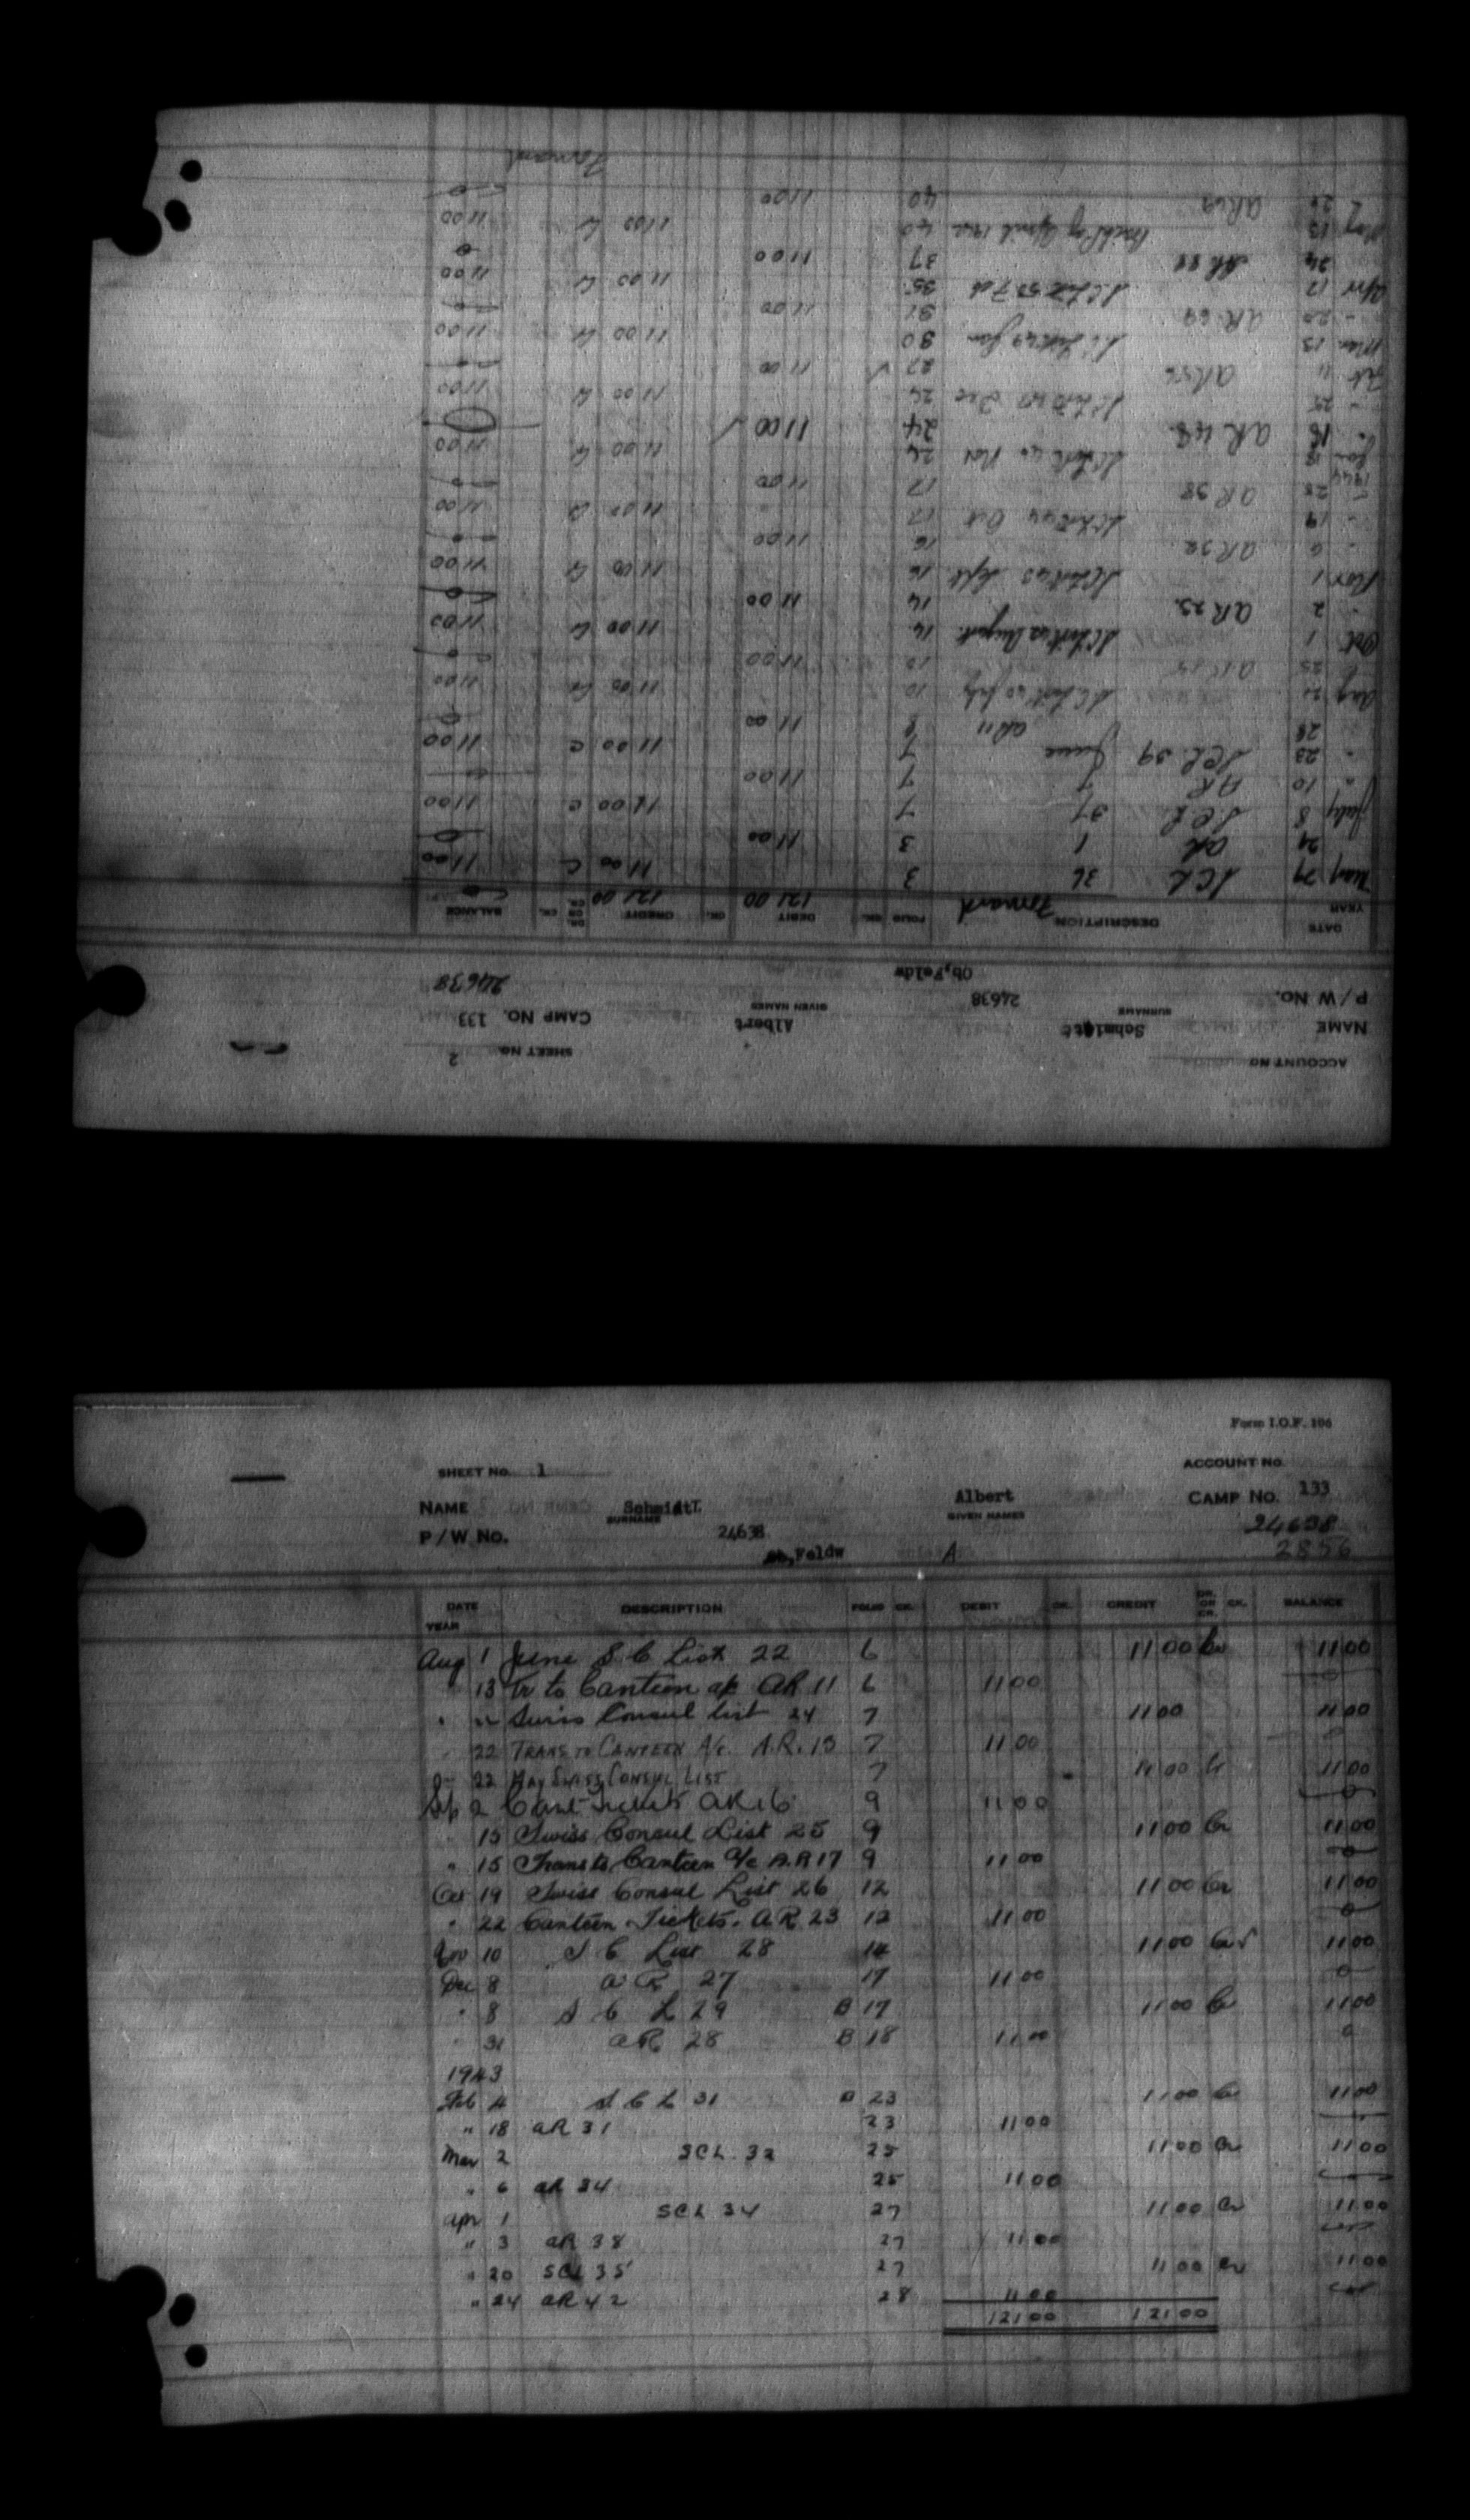 ACCOUNT NO
SHEET NO. 2
NAME Schmidt Albert CAMP NO. 133
SURNAME GIVEN NAMES
P/W No. 24638 24638
Ob,Feldw
DATE YEAR DESCRIPTION FOLIO CK. DEBIT CK. CREDIT DR. OR CR. CK. BALANCE
Forward 121 00 121 00 0
May 19 SCL 36 3 11 00 C 11 00
24 AR 1 3 11 00 0
July 8 SCL 37 7 11 00 C 11 00
" 10 AR 7 7 11 00
" 23 SCL 39 June 7 11 00 C 11 00
28 AR 11 8 11 00 0
Aug 21 SC List 40 July 10 11 00 Cr 11 00
25 AR 15 10 11 00 0
Oct 1 SC List 42 August 14 11 00 Cr 11 00
" 2 AR 23. 14 11 00 0
Nov 1 SC List 43 Sept 16 11 00 Cr 11 00
" 6 AR 32 16 11 00 0
" 19 SC List 44 Oct 17 11 00 Cr 11 00
" 28 AR 38 17 11 00 0
1944
Jan SC List 46 Nov 24 11 00 Cr 11 00
" 18 AR 48 24 11 00 0
" 25 SC List Dec 24 11 00 Cr 11 00
Feb 11 AR 56 27 11 00 0
Mar 13 SC List 49 Jan 30 11 00 Cr 11 00
" 20 AR 69 11 00 0
Apr 17 SC List 50 Feb 35 11 00 Cr 11 00
24 AR 88 37 11 00 0
May 13 March & April 40 11 00 Cr 11 00
AR 40 11 00 0
Forward
Form I.O.F. 106
SHEET NO. 1 ACCOUNT NO.
NAME Schmidt Albert CAMP NO. 133
SURNAME GIVEN NAMES
P/W No. 24638 24638
Ob,Feldw A 2856
DATE YEAR DESCRIPTION FOLIO CK. DEBIT CK. CREDIT DR. OR CR. CK. BALANCE
Aug 1 June S C List 22 6 11 00 Cr 11 00
" 13 Tr to Canteen a/c AR 11 6 11 00 0
" " Swiss Consul list 24 7 11 00 11 00
" 22 TRANS TO CANTEEN A/C. A.R. 13 7 11 00 0
" 22 MAY SWISS CONSUL LIST 7 11 00 Cr 11 00
Sep 2 Cant Tickets AR 16 9 11 00 0
" 15 Swiss Consul List 25 9 11 00 Cr 11 00
" 15 Trans to Canteen a/c A.R 17 9 11 00 0
Oct 19 Swiss Consul List 26 12 11 00 Cr 11 00
" 22 Canteen Tickets. AR 23 12 11 00 0
Nov 10 S C List 28 14 11 00 Cr √ 11 00
Dec 8 AR 27 17 11 00 0
" 8 S C L 29 B 17 11 00 Cr 11 00
" 31 AR 28 B 18 11 00 0
1943
Feb 4 S C L 31 B 23 11 00 Cr 11 00
" 18 AR 31 23 11 00
Mar 2 SCL. 32 25 11 00 Cr 11 00
" 6 AR 34 25 11 00
Apr 1 SCL 34 27 11 00 Cr 11 00
" 3 AR 38 27 11 00
" 20 SCL 35 27 11 00 Cr 11 00
" 24 AR 42 28 11 00
121 00 121 00